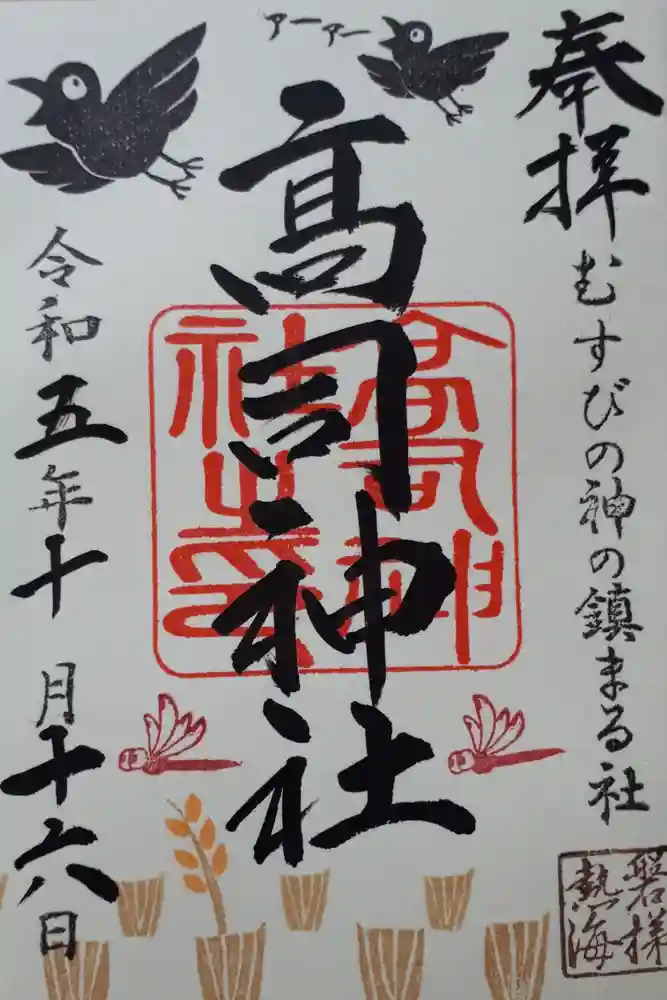 奉拝
むすびの神の鎮まる社
磐梯
熱海
アーアー
高司神社
高司神
社之印
令和五年十月十六日